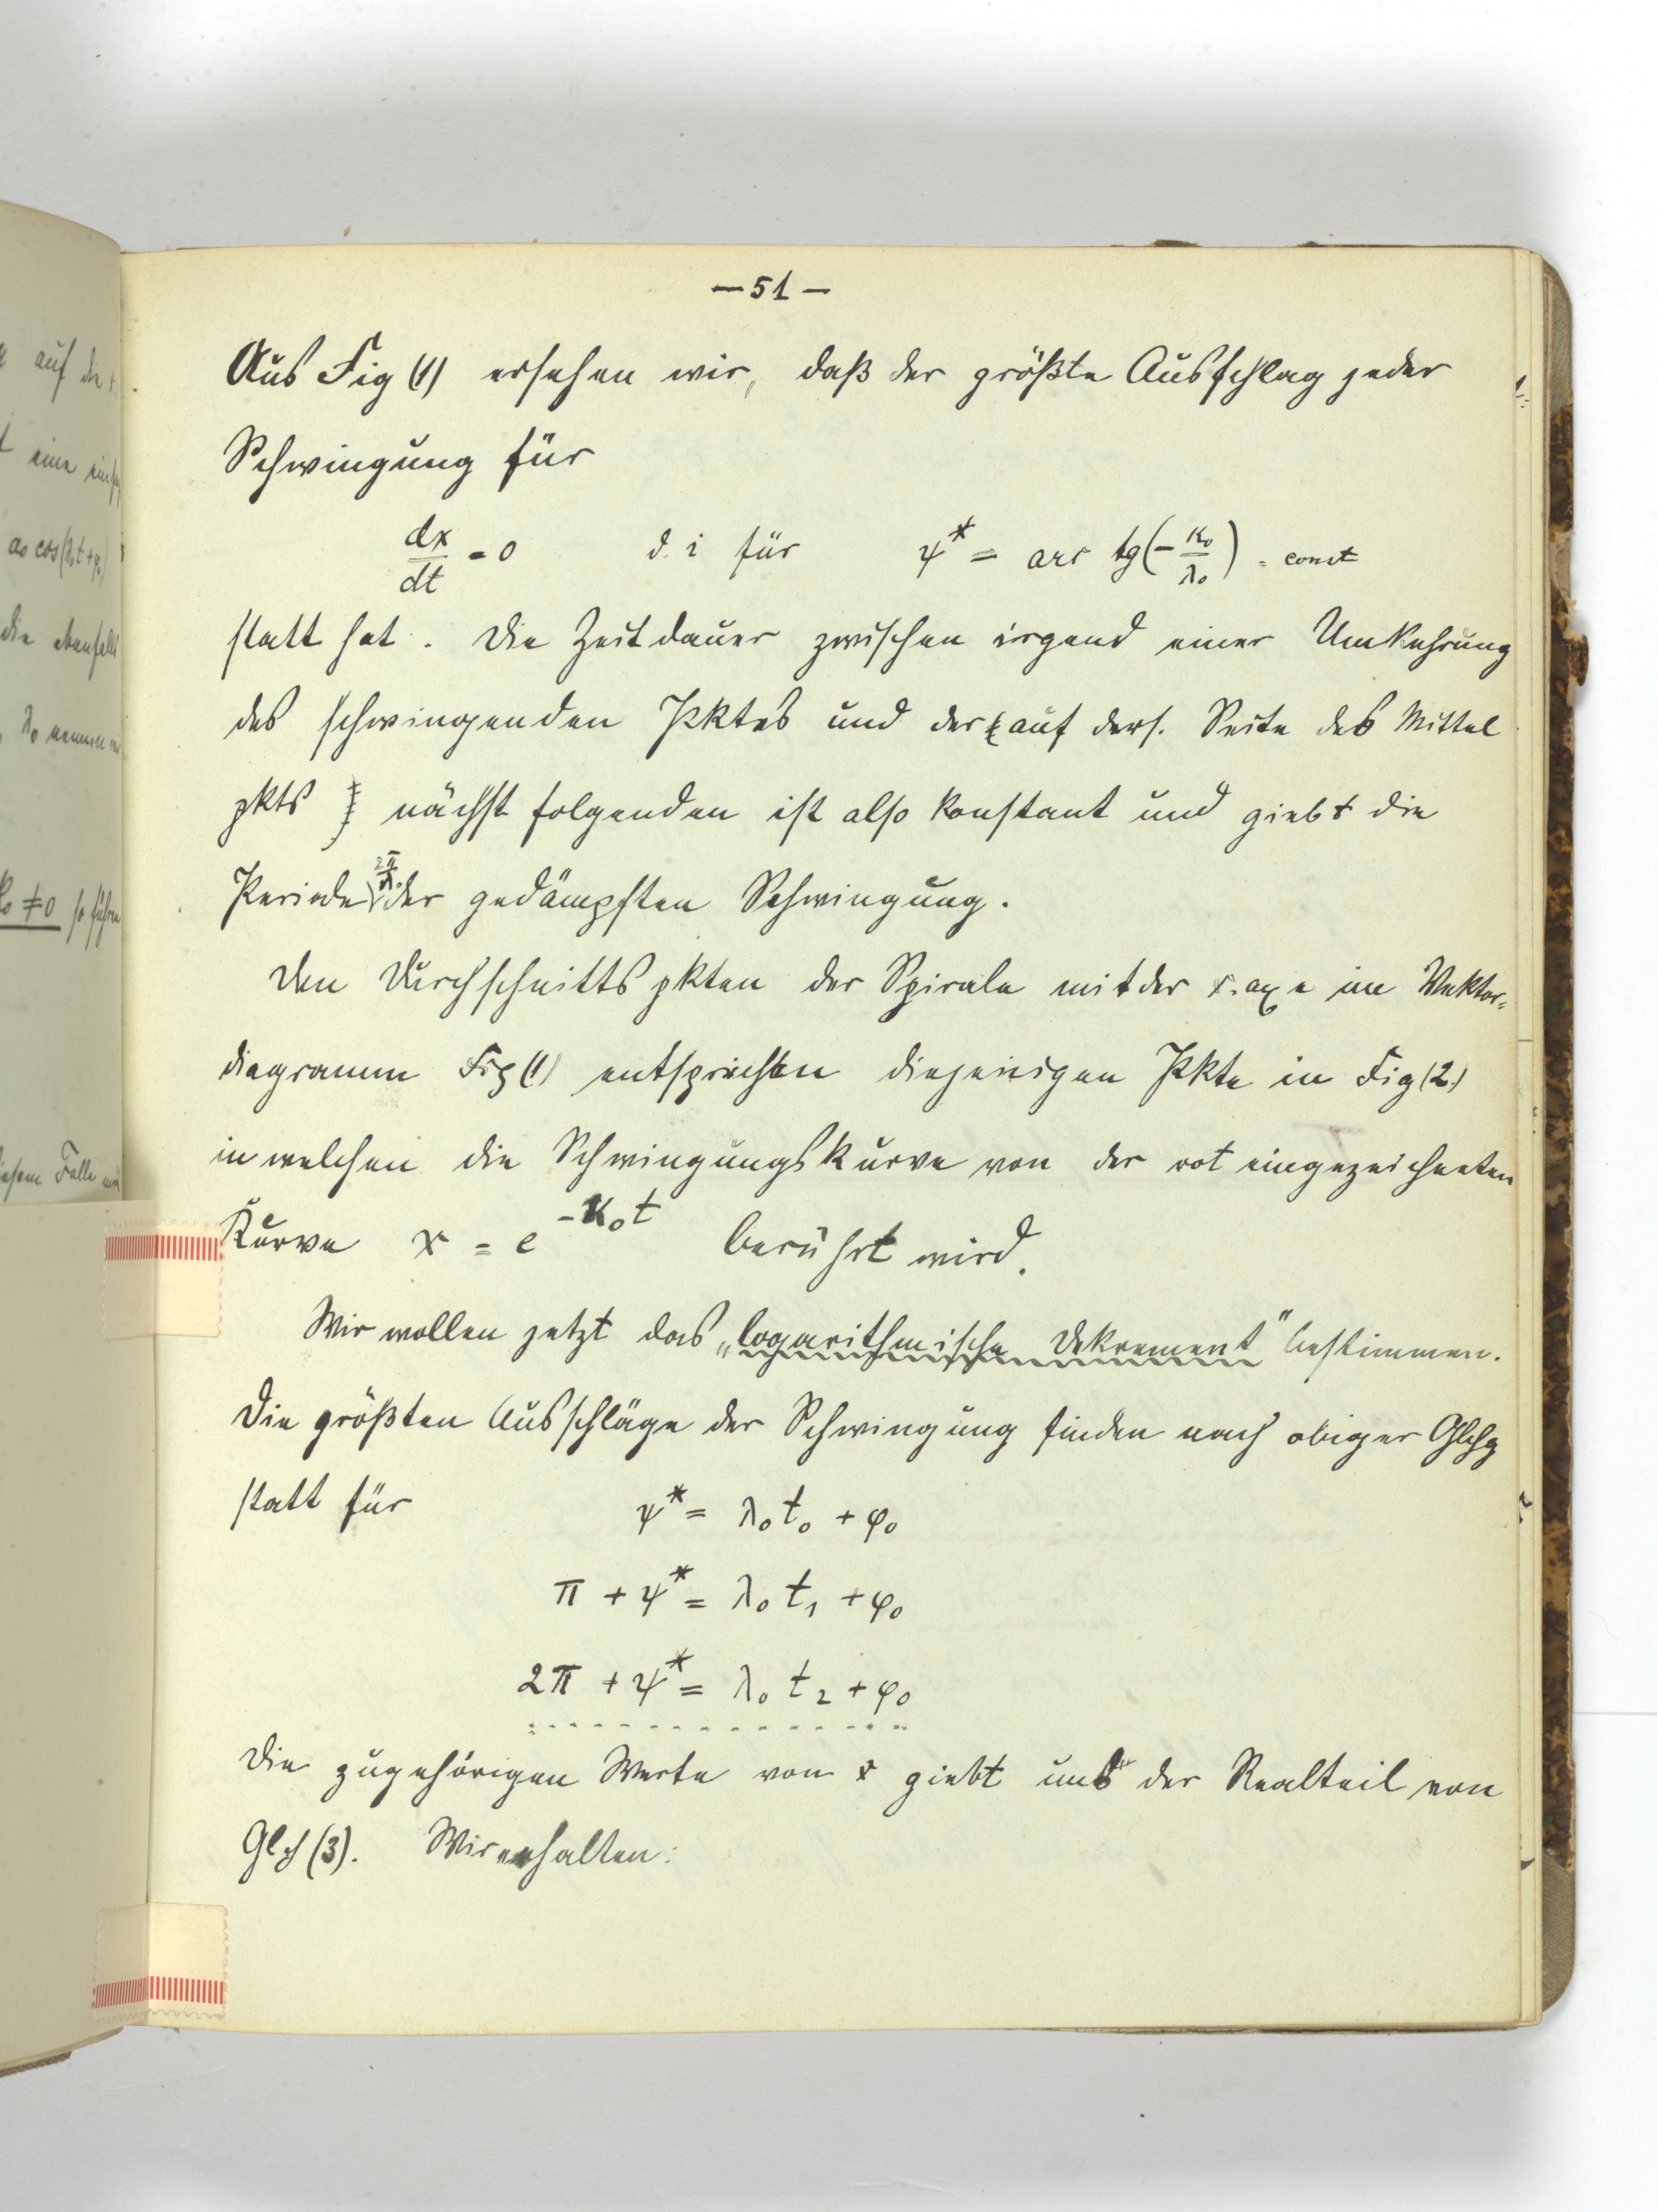 — 51 —
Aus Fig (1) ersehen wir, daß der größte Ausschlag jeder
Schwingung für
dx/dt = 0 d. i für ψ* = arc tg(-κ₀/λ₀) = const
statt hat. Die Zeitdauer zwischen irgend einer Umkehrung
des schwingenden Pktes und der (auf ders. Seite des Mittel
pkts) nächst folgenden ist also konstant und giebt die
Periode 2π/λ₀ der gedämpften Schwingung.
Den Durchschnittspkten der Spirale mit der x-axe im Vektor-
diagramm Fig (1) entsprechen diejenigen Pkte in Fig (2.)
in welchen die Schwingungskurve von der rot eingezeichneten
Kurve x = e^{-κ₀t} berührt wird.
Wir wollen jetzt das „logarithmische Dekrement" bestimmen.
Die größten Ausschläge der Schwingung finden nach obiger Glchg
statt für ψ* = λ₀t₀ + φ₀
π + ψ* = λ₀t₁ + φ₀
2π + ψ* = λ₀t₂ + φ₀
Die zugehörigen Werte von x giebt uns der Realteil von
Glch (3). Wir erhalten: